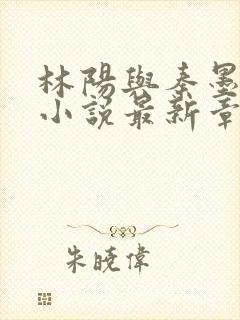 林陽與秦墨
小說最新章
朱曉偉